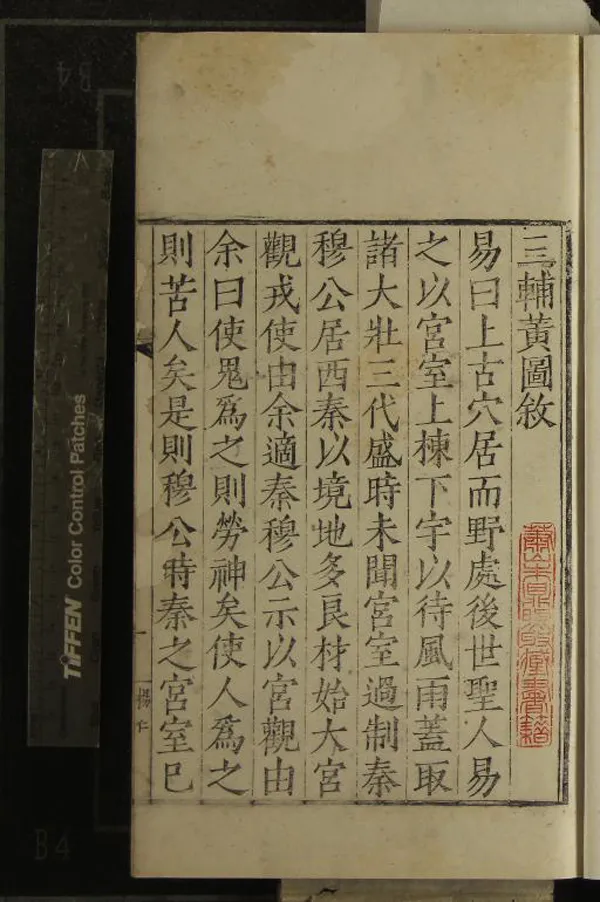 三輔黃圖敘
易曰上古穴居而野處後世聖人易
之以宮室上棟下宇以待風雨蓋取
諸大壯三代盛時未聞宮室過制秦
穆公居西秦以境地多良材始大宮
觀戎使由余適秦穆公示以宮觀由
余曰使鬼爲之則勞神矣使人爲之
則苦人矣是則穆公時秦之宮室已
一
楊仁
TIFFEN Color Control Patches
B4
B4